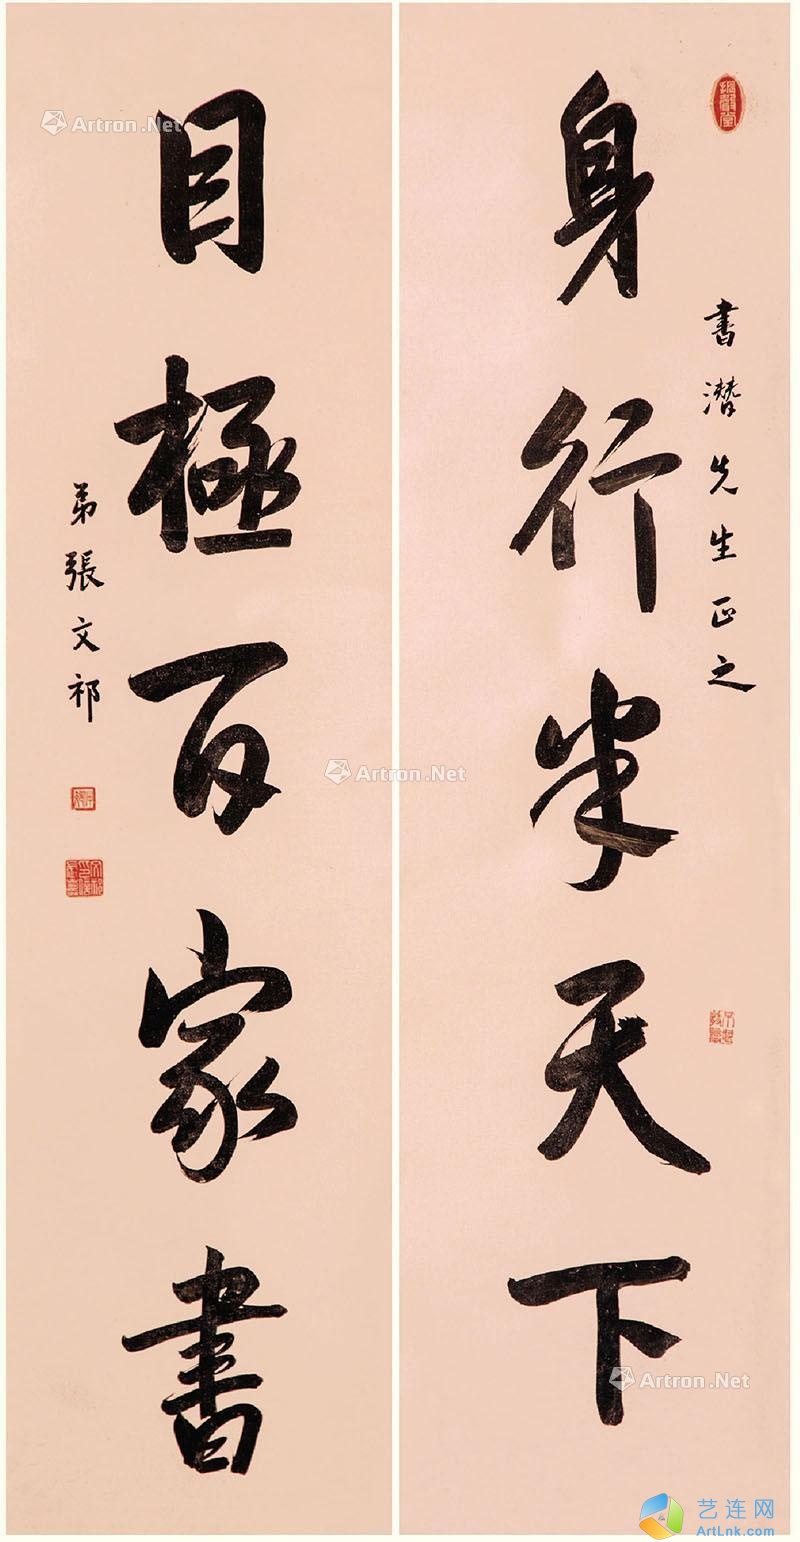 身行半天下
書潛先生正之
目極百家書
弟張文祁
Artron.Net
Artron.Net
Artron.Net
艺连网
ArtLnk.com